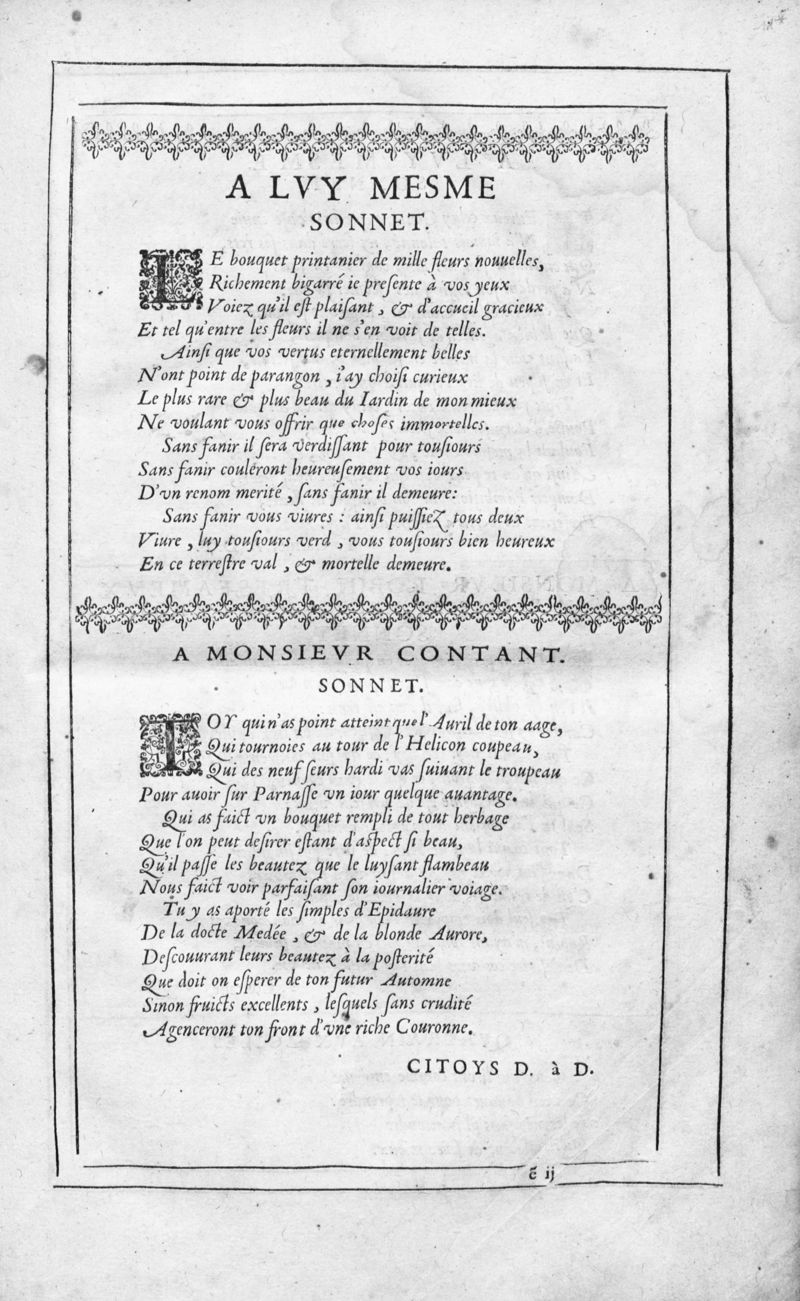 A LVY MESME
SONNET.
LE bouquet printanier de mille fleurs nouuelles,
Richement bigarré ie preſente à vos yeux
Voiez qu'il eſt plaiſant, & d'accueil gracieux
Et tel qu'entre les fleurs il ne s'en voit de telles.
Ainſi que vos vertus eternellement belles
N'ont point de parangon, i'ay choiſi curieux
Le plus rare & plus beau du Iardin de mon mieux
Ne voulant vous offrir que choſes immortelles.
Sans fanir il ſera verdiſſant pour touſiours
Sans fanir couleront heureuſement vos iours
D'vn renom merité, ſans fanir il demeure:
Sans fanir vous viures : ainſi puiſſiez tous deux
Viure, luy touſiours verd, vous touſiours bien heureux
En ce terreſtre val, & mortelle demeure.
A MONSIEVR CONTANT.
SONNET.
TOY qui n'as point atteint que l'Auril de ton aage,
Qui tournoies au tour de l'Helicon coupeau,
Qui des neuf ſeurs hardi vas ſuiuant le troupeau
Pour auoir ſur Parnaſſe vn iour quelque auantage.
Qui as faict vn bouquet rempli de tout herbage
Que l'on peut deſirer eſtant d'aſpect ſi beau,
Qu'il paſſe les beautez que le luyſant flambeau
Nous faict voir parfaiſant ſon iournalier voiage.
Tu y as aporté les ſimples d'Epidaure
De la docte Medée, & de la blonde Aurore,
Deſcouurant leurs beautez à la poſterité
Que doit on eſperer de ton futur Automne
Sinon fruicts excellents, leſquels ſans crudité
Agenceront ton front d'vne riche Couronne.
CITOYS D. à D.
ẽ ij